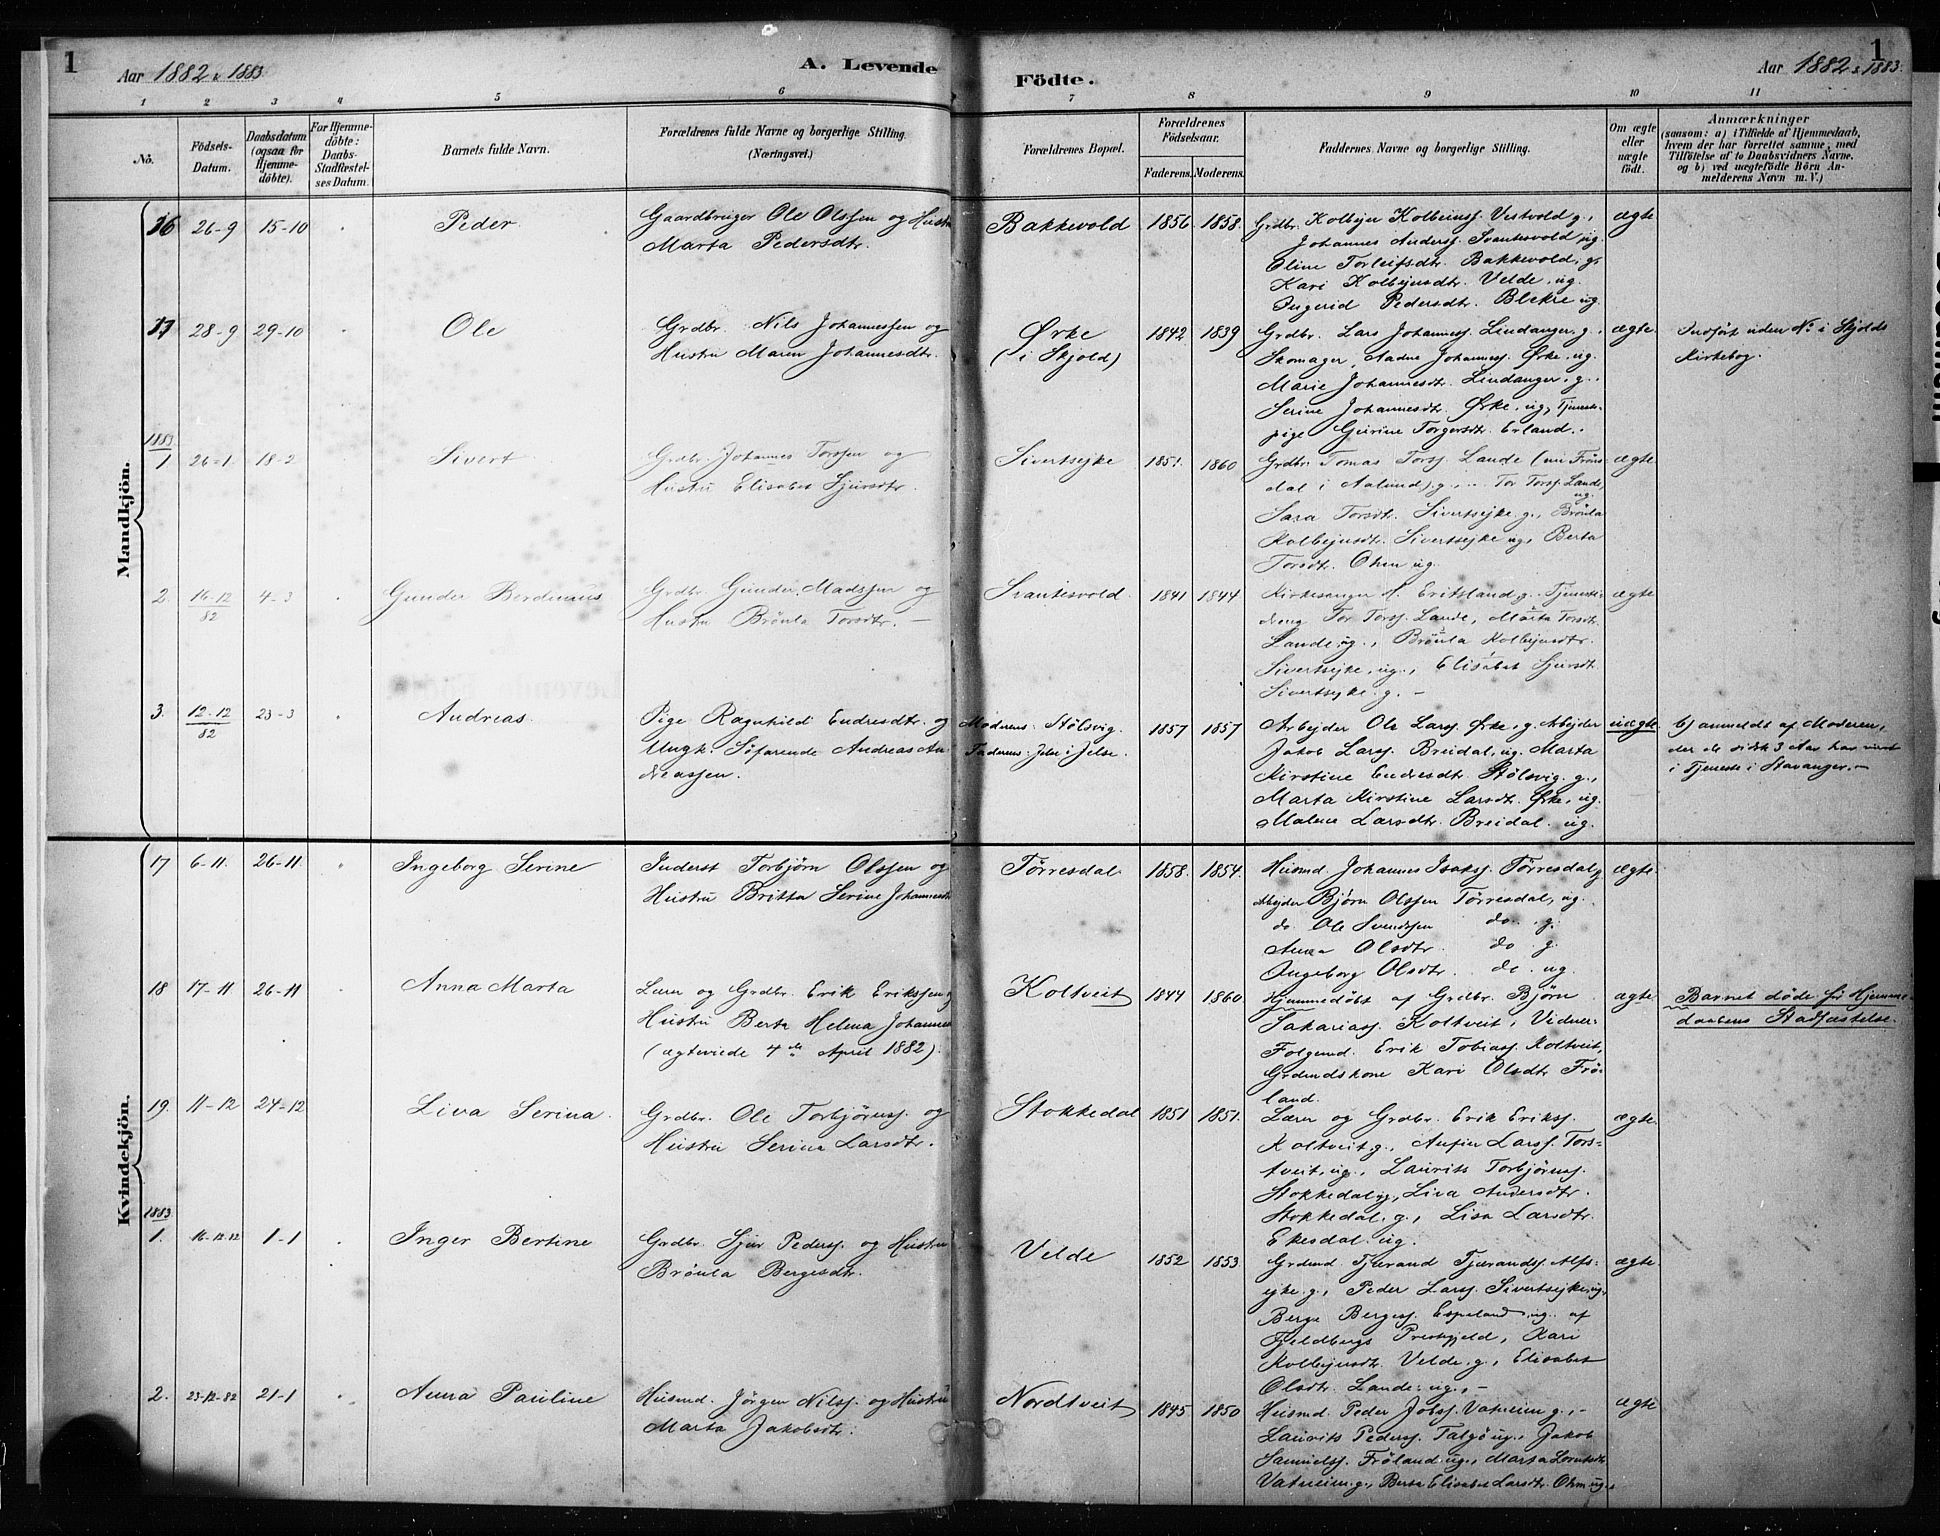 1
Aar 1882 & 1883
A. Levende
Födte.
Aar 1882 & 1883.
1
1 2 3 4 5 6 7 8 9 10 11
No.
Födsels-
Datum.
Daabsdatum
(ogsaa for
Hjemme-
döbte).
For Hjemme-
döbte:
Daabs-
Stadfæstel-
ses Datum.
Barnets fulde Navn.
Forældrenes fulde Navne og borgerlige Stilling.
(Næringsvei.)
Forældrenes Bopæl.
Forældrenes
Födselsaar.
Faderens. Moderens.
Faddernes Navne og borgerlige Stilling.
Om ægte
eller
uægte
födt.
Anmærkninger
(saasom: a) i Tilfælde af Hjemmedaab,
hvem der har forrettet samme, med
Tilföielse af to Daabsvidners Navne,
og b) ved uægtefödte Börn An-
melderens Navn m. V.)
Mandkjön.
16 26-9 15-10 Peder
Gaardbruger Ole Olssen og Hustru
Marta Pedersdtr.
Bakkevold 1856 1858.
Grdbr. Kolbejn Kolbeinss. Vestvold g.,
Johannes Anderss. Svantesvold, ug.
Eline Torleifsdtr. Bakkevold, g.
Kari Kolbejnsdtr. Velde, ug.
Ingerid Pedersdtr. Blekre ug.
ægte
17 28-9 29-10 Ole
Grdbr. Nils Johannessen og
Hustru Maren Johannesdtr.
Ørke
(i Skjold)
1842 1839
Grdbr. Lars Johanness. Lindanger, g.,
Skomager, Aadne Johanness. Ørke, ug.
Marie Johannesdtr. Lindanger, g.,
Serine Johannesdtr. Ørke, ug, Tjeneste-
pige Gurine Torgersdtr. Erland.
ægte.
Indført uden No. i Skjolds
Kirkebog.
1883
1 26-1. 18-2 Sivert
Grdbr. Johannes Torssen og
Hustru Elisabet Sjursdtr.
Sivertsejke 1851. 1860
Grdbr. Tomas Torss. Lande (nu Frøns-
dal i Aalund) g., Tor Torss. Lande,
ug.
Sara Torsdtr. Sivertsejke g., Brønla
Kolbejnsdtr. Sivertsejke ug, Berta
Torsdtr. Ohm ug.
ægte.
2. 16-12/82 4-3 Gunder Berdinius
Grdbr Gunder Madssen og
Hustru Brønla Torsdtr. -
Svantesvold. 1841 1844
Kirkesanger M. Eritsland g. Tjeneste-
dreng Tor Torss. Lande, Marta Torsdtr.
Lande, ug., Brønla Kolbejnsdtr.
Sivertsejke, ug., Elisabet Sjursdt.
Sivertsejke. g. -
ægte
3. 12-12/82 23-3 Andreas
Pige Ragnhild Endresdtr. og
Ungk. Søfarende Andreas An-
dreassen.
Moderens: Stølsvig.
Faderens: Jelse i Jelse.
1857 1857
Arbejder Ole Larss. Ørke, g. Arbejder
Jakob Larss. Breidal, ug. Marta
Kirstine Endresdt. Stølsvig. g.,
Marta Kirstine Larsdtr. Ørke, ug.
Malene Larsdtr. Breidal. ug.
uægte.
b) anmeldt af Moderen,
der de sidste 3 Aar har været
i Tjeneste i Stavanger. -
Kvindekjön.
17 6-11. 26-11 Ingeborg Serine
Inderst Torbjørn Olssen og
Hustru Britta Serine Johannesdtr
Tørresdal. 1858. 1854.
Husmd. Johannes Isakss. Tørresdal g
Arbejder Bjørn Olssen Tørresdal, ug.
do Ole Svendssen do. g.
Anna Olsdtr. do g.
Ingeborg Olsdtr. do. ug.
ægte.
18 17-11. 26-11 Anna Marta
Lærer og Grdbr. Erik Erikssen og
Hustru Berta Helena Johannesd
(ægteviede 4de April 1882).
Koltveit 1844 1860
Hjemmedøbt af Grdbr. Bjørn
Sakariass. Koltveit, Vidner:
Folgemd. Erik Tobiass. Koltveit,
Grdmdskone Kari Olsdtr Frø-
land.
ægte.
Barnet døde før Hjemme-
daabens Stadfæstelse.
19. 11-12 24-12 Liva Serina.
Grdbr. Ole Torbjørnss. og
Hustru Serina Larsdtr.
Stokkedal 1851 1851.
Lærer og Grdbr. Erik Erikss.
Koltveit g., Anfin Larss. Tors-
tveit, ug., Laurits Torbjørnss.
Stokkedal g, Liva Andersdtr.
Stokkedal. g., Lisa Larsdtr.
Ekesdal. ug.
ægte.
1883
1. 16-12.82 1-1 Inger Bertine
Grdbr. Sjur Pederss. og Hustru
Brønla Bergesdtr.
Velde 1852 1853.
Grdmd. Tjærand Tjærandss. Alfs-
ejke. g., Peder Larss. Sivertsejke, ug.,
Berge Bergess. Espeland, ug. af
Fjeldbergs Prestgjeld, Kari
Kolbejnsdtr. Velde, g., Elisabet
Olsdtr. Lande, ug., -
ægte.
2. 23-12-82 21-1 Anna Pauline
Husmd. Jörgen Nilss. og Hustru
Marta Jakobsdtr.
Nordtveit 1845 1850
Husmd. Peder Jobss. Vatneim g., -
Laurits Pederss. Talgø ug., Jakob
Samuelss. Frøland ug., Marta Lorntsdtr
Vatneim g., Berta Elisabet Larsdtr. Ohm ug.
ægte